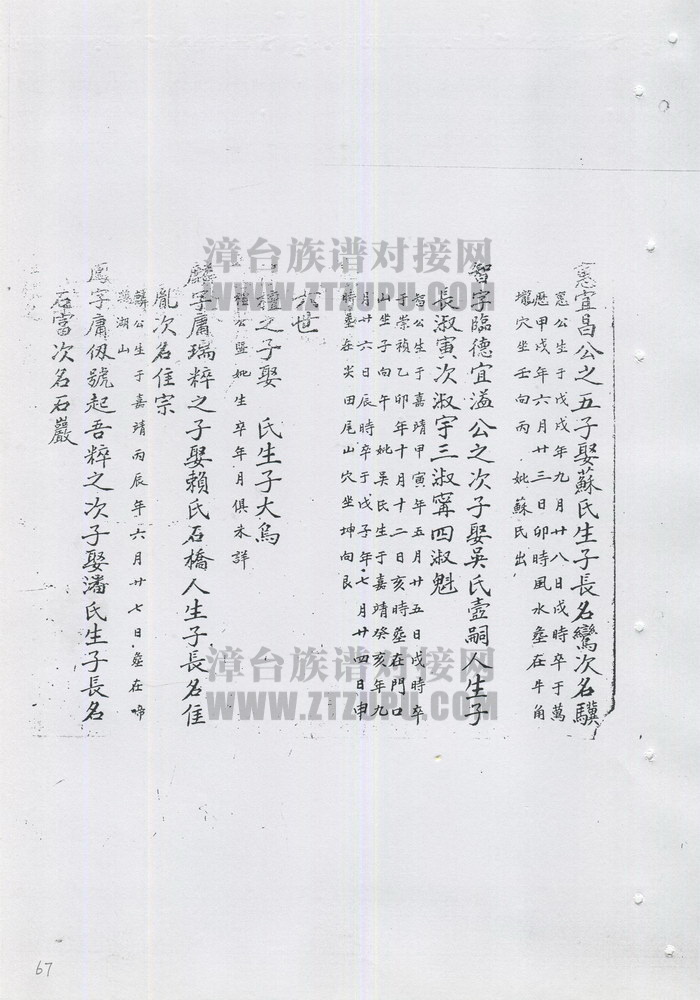 憲宜昌公之五子娶蘇氏生子長名鸞次名驥
憲公生于戊戌年九月廿八日戌時卒于萬
曆甲戌年六月廿三日卯時風水塟在牛角
壠穴坐壬向丙 妣蘇氏出
智字臨德宜溢公之次子娶吳氏壼嗣人生子
長淑寅次淑宇三淑寗四淑魁
智公生于嘉靖甲寅年五月廿五日戌時卒
于崇禎乙卯年十月十二日亥時塟在門口
山坐子向午 妣吳氏生于嘉靖癸亥年九
月廿六日辰時卒于戊子年七月廿四日申
時塟在尖田尾山穴坐坤向艮
六世
禮之子娶 氏生子大烏
禮公暨妣生卒年月俱未詳
麟字庸瑞粹之子娶賴氏石橋人生子長名隹
胤次名隹宗
麟公生于嘉靖丙辰年六月廿七日塟在啼
湖山
鳳字庸伋號起吾粹之次子娶潘氏生子長名
石當次名石巖
漳台族谱对接网
WWW.ZTZUPU.COM
漳台族谱对接网
WWW.ZTZUPU.COM
67